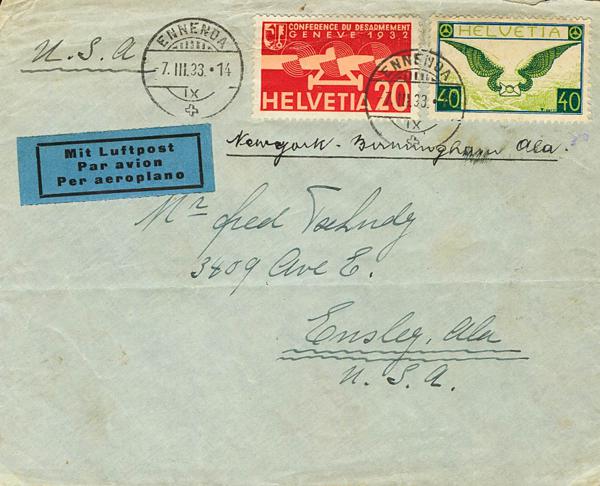 U.S.A
ENNENDA
7.III.33.•14
IX
CONFERENCE DU DESARMEMENT
GENEVE 1932
HELVETIA 20
ENNENDA
III.33.
IX
HELVETIA
40 40
Newyork - Birmingham Ala.
Mit Luftpost
Par avion
Per aeroplano
Mr Fred Tschudy
3409 Ave E.
Ensley, Ala
U.S.A.